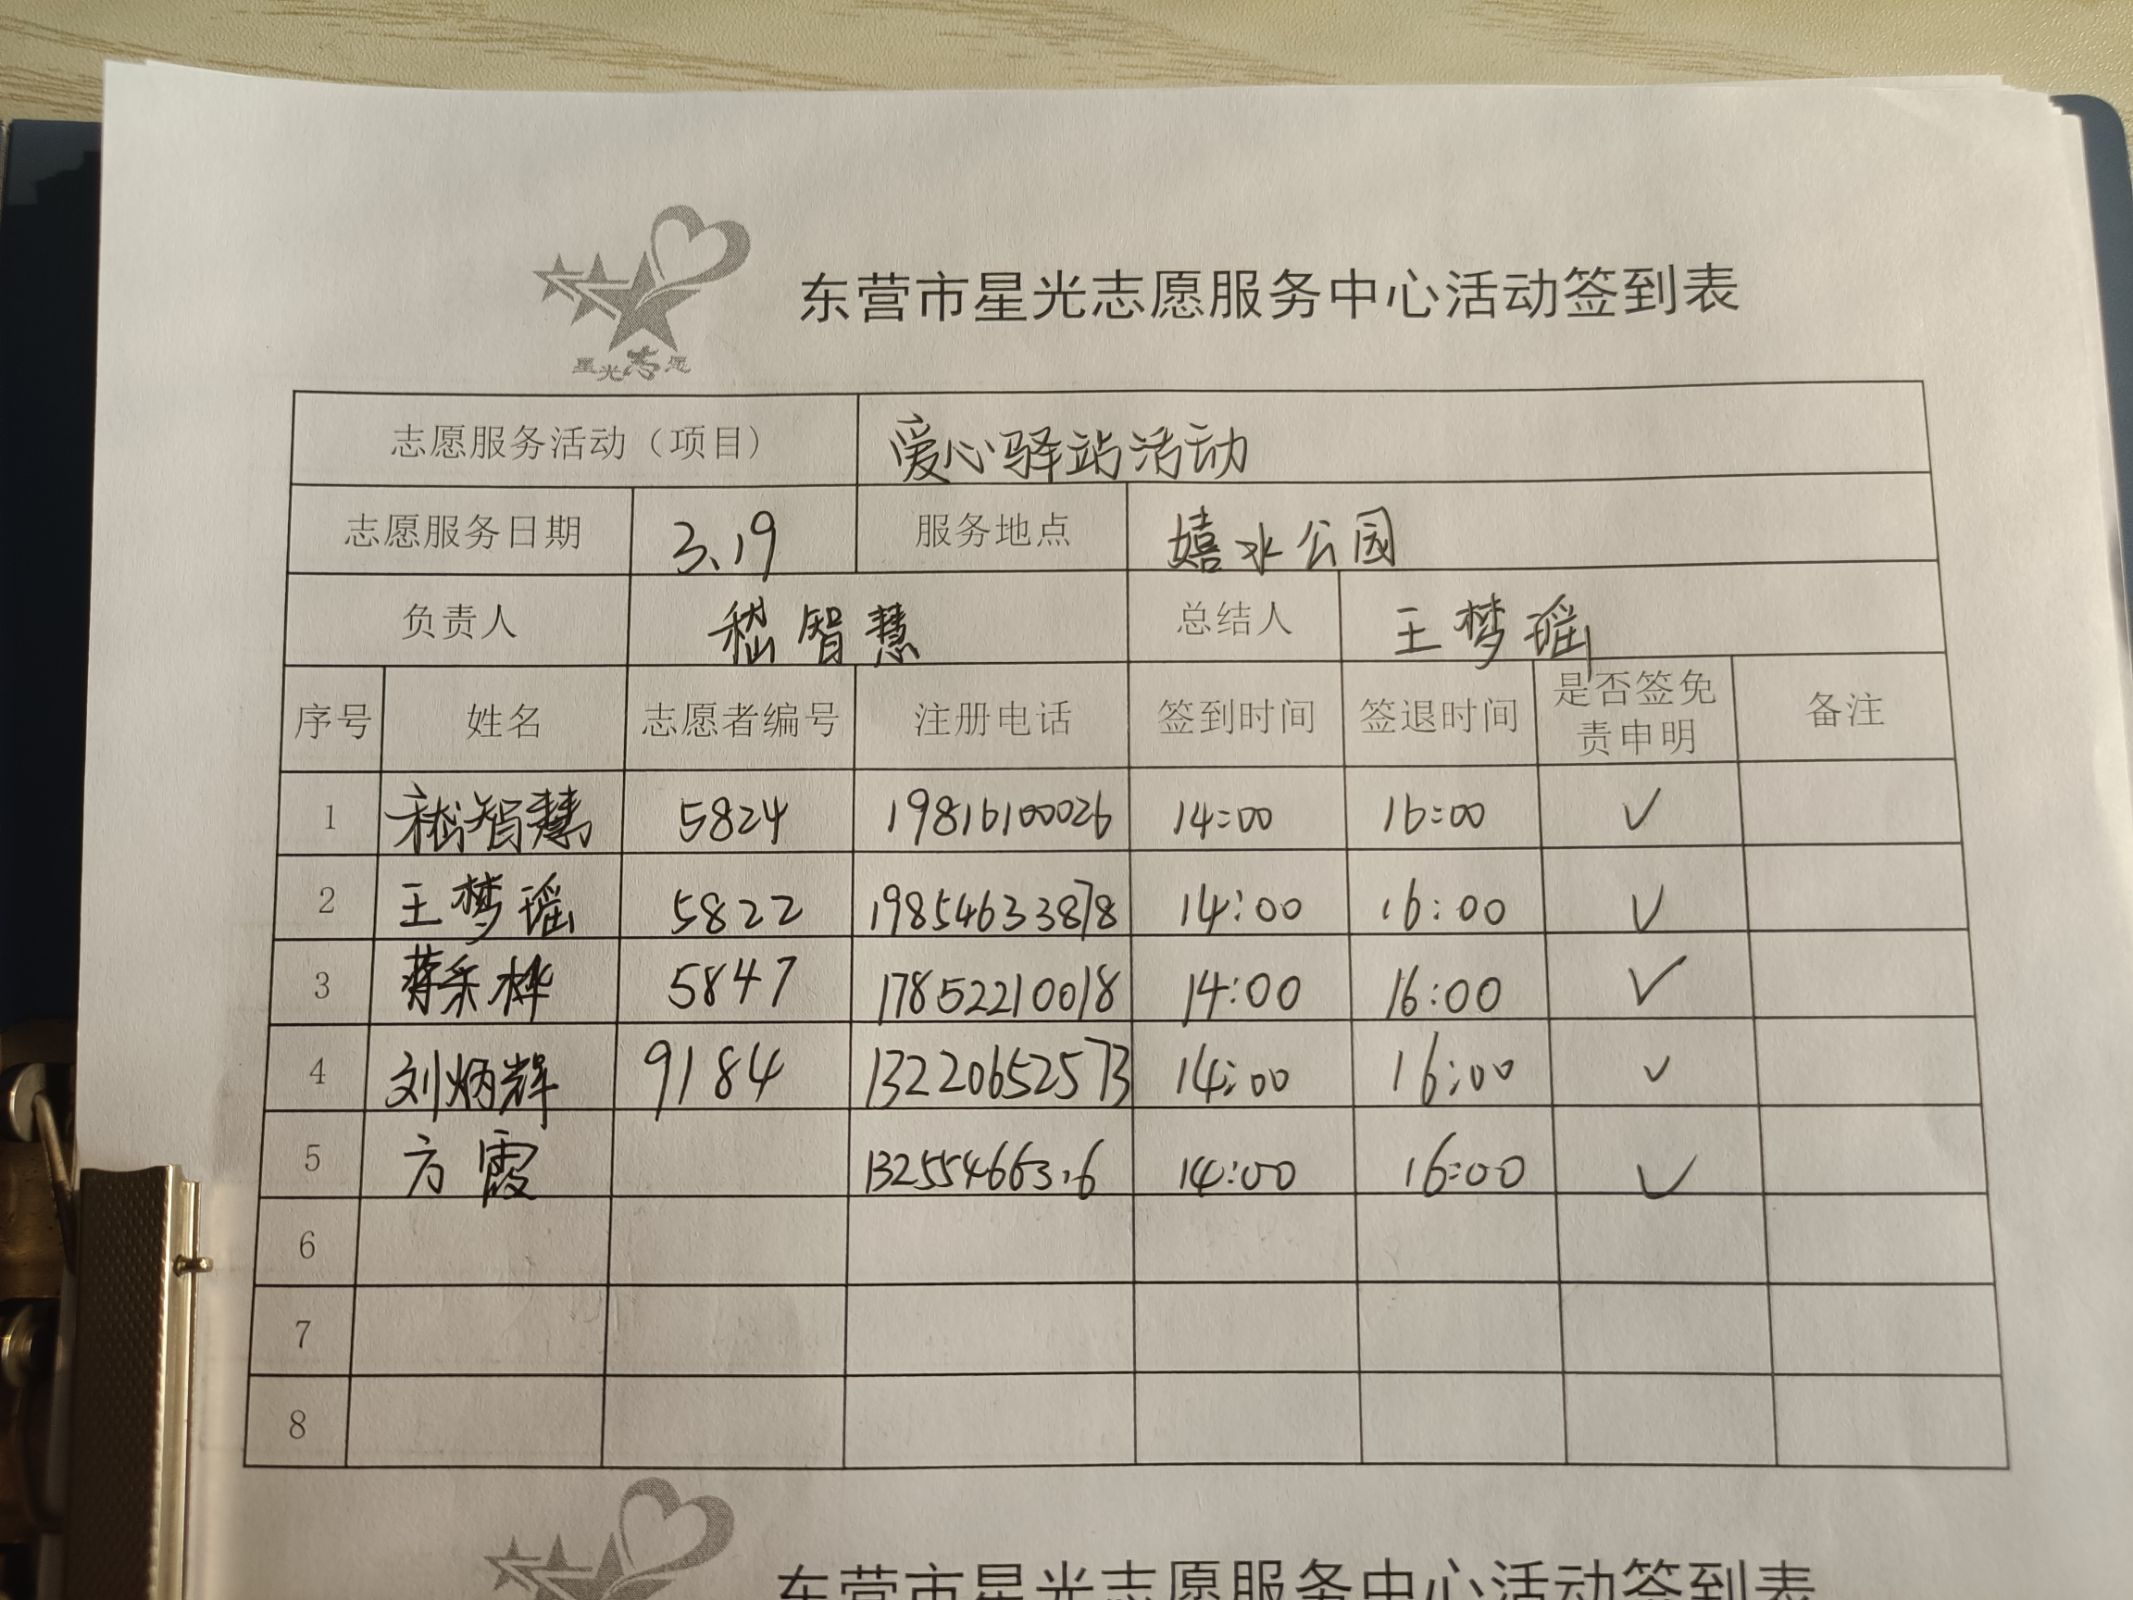 东营市星光志愿服务中心活动签到表
星光志愿
志愿服务活动（项目） 爱心驿站活动
志愿服务日期 3.19 服务地点 嬉水公园
负责人 嵇智慧 总结人 王梦瑶
序号 姓名 志愿者编号 注册电话 签到时间 签退时间 是否签免责申明 备注
1 嵇智慧 5824 19816100026 14:00 16:00 ✓
2 王梦瑶 5822 19854633878 14:00 16:00 ✓
3 蒋采桦 5847 17852210018 14:00 16:00 ✓
4 刘炳辉 9184 13220652573 14:00 16:00 ✓
5 方霞 14:00 16:00 ✓
6
7
8
东营市星光志愿服务中心活动签到表